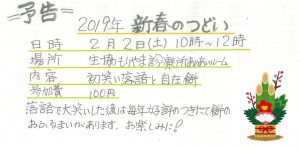 予告
2019年 新春のつどい
日時 2月2日(土)10時〜12時
場所 生協もりやま診療所あおいルーム
内容 初笑い落語と自在餅
参加費 100円
落語で大笑いした後は毎年好評のつきたて餅の
おふるまいがあります。お楽しみに!